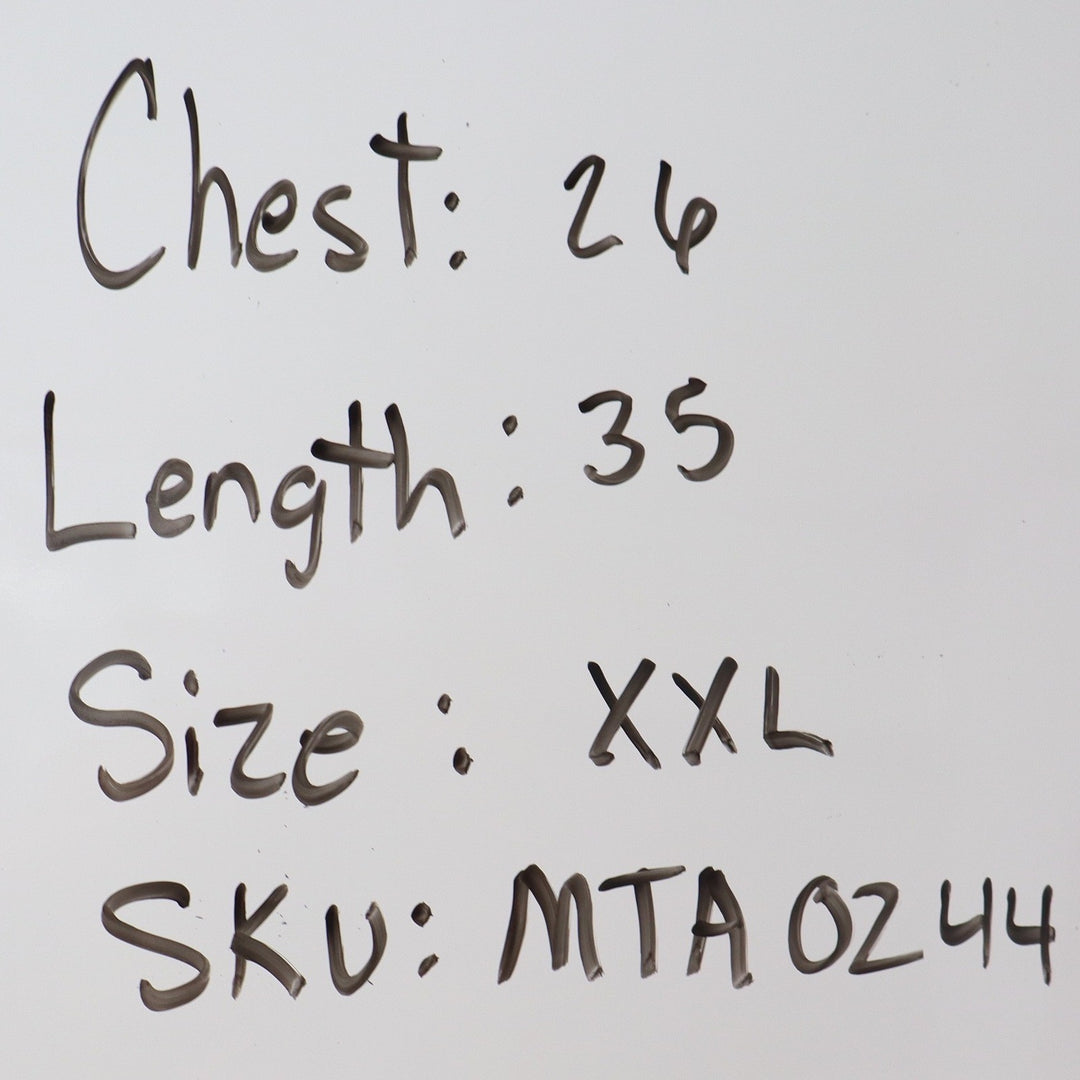 Chest: 26
Length: 35
Size: XXL
SKU: MTA0244